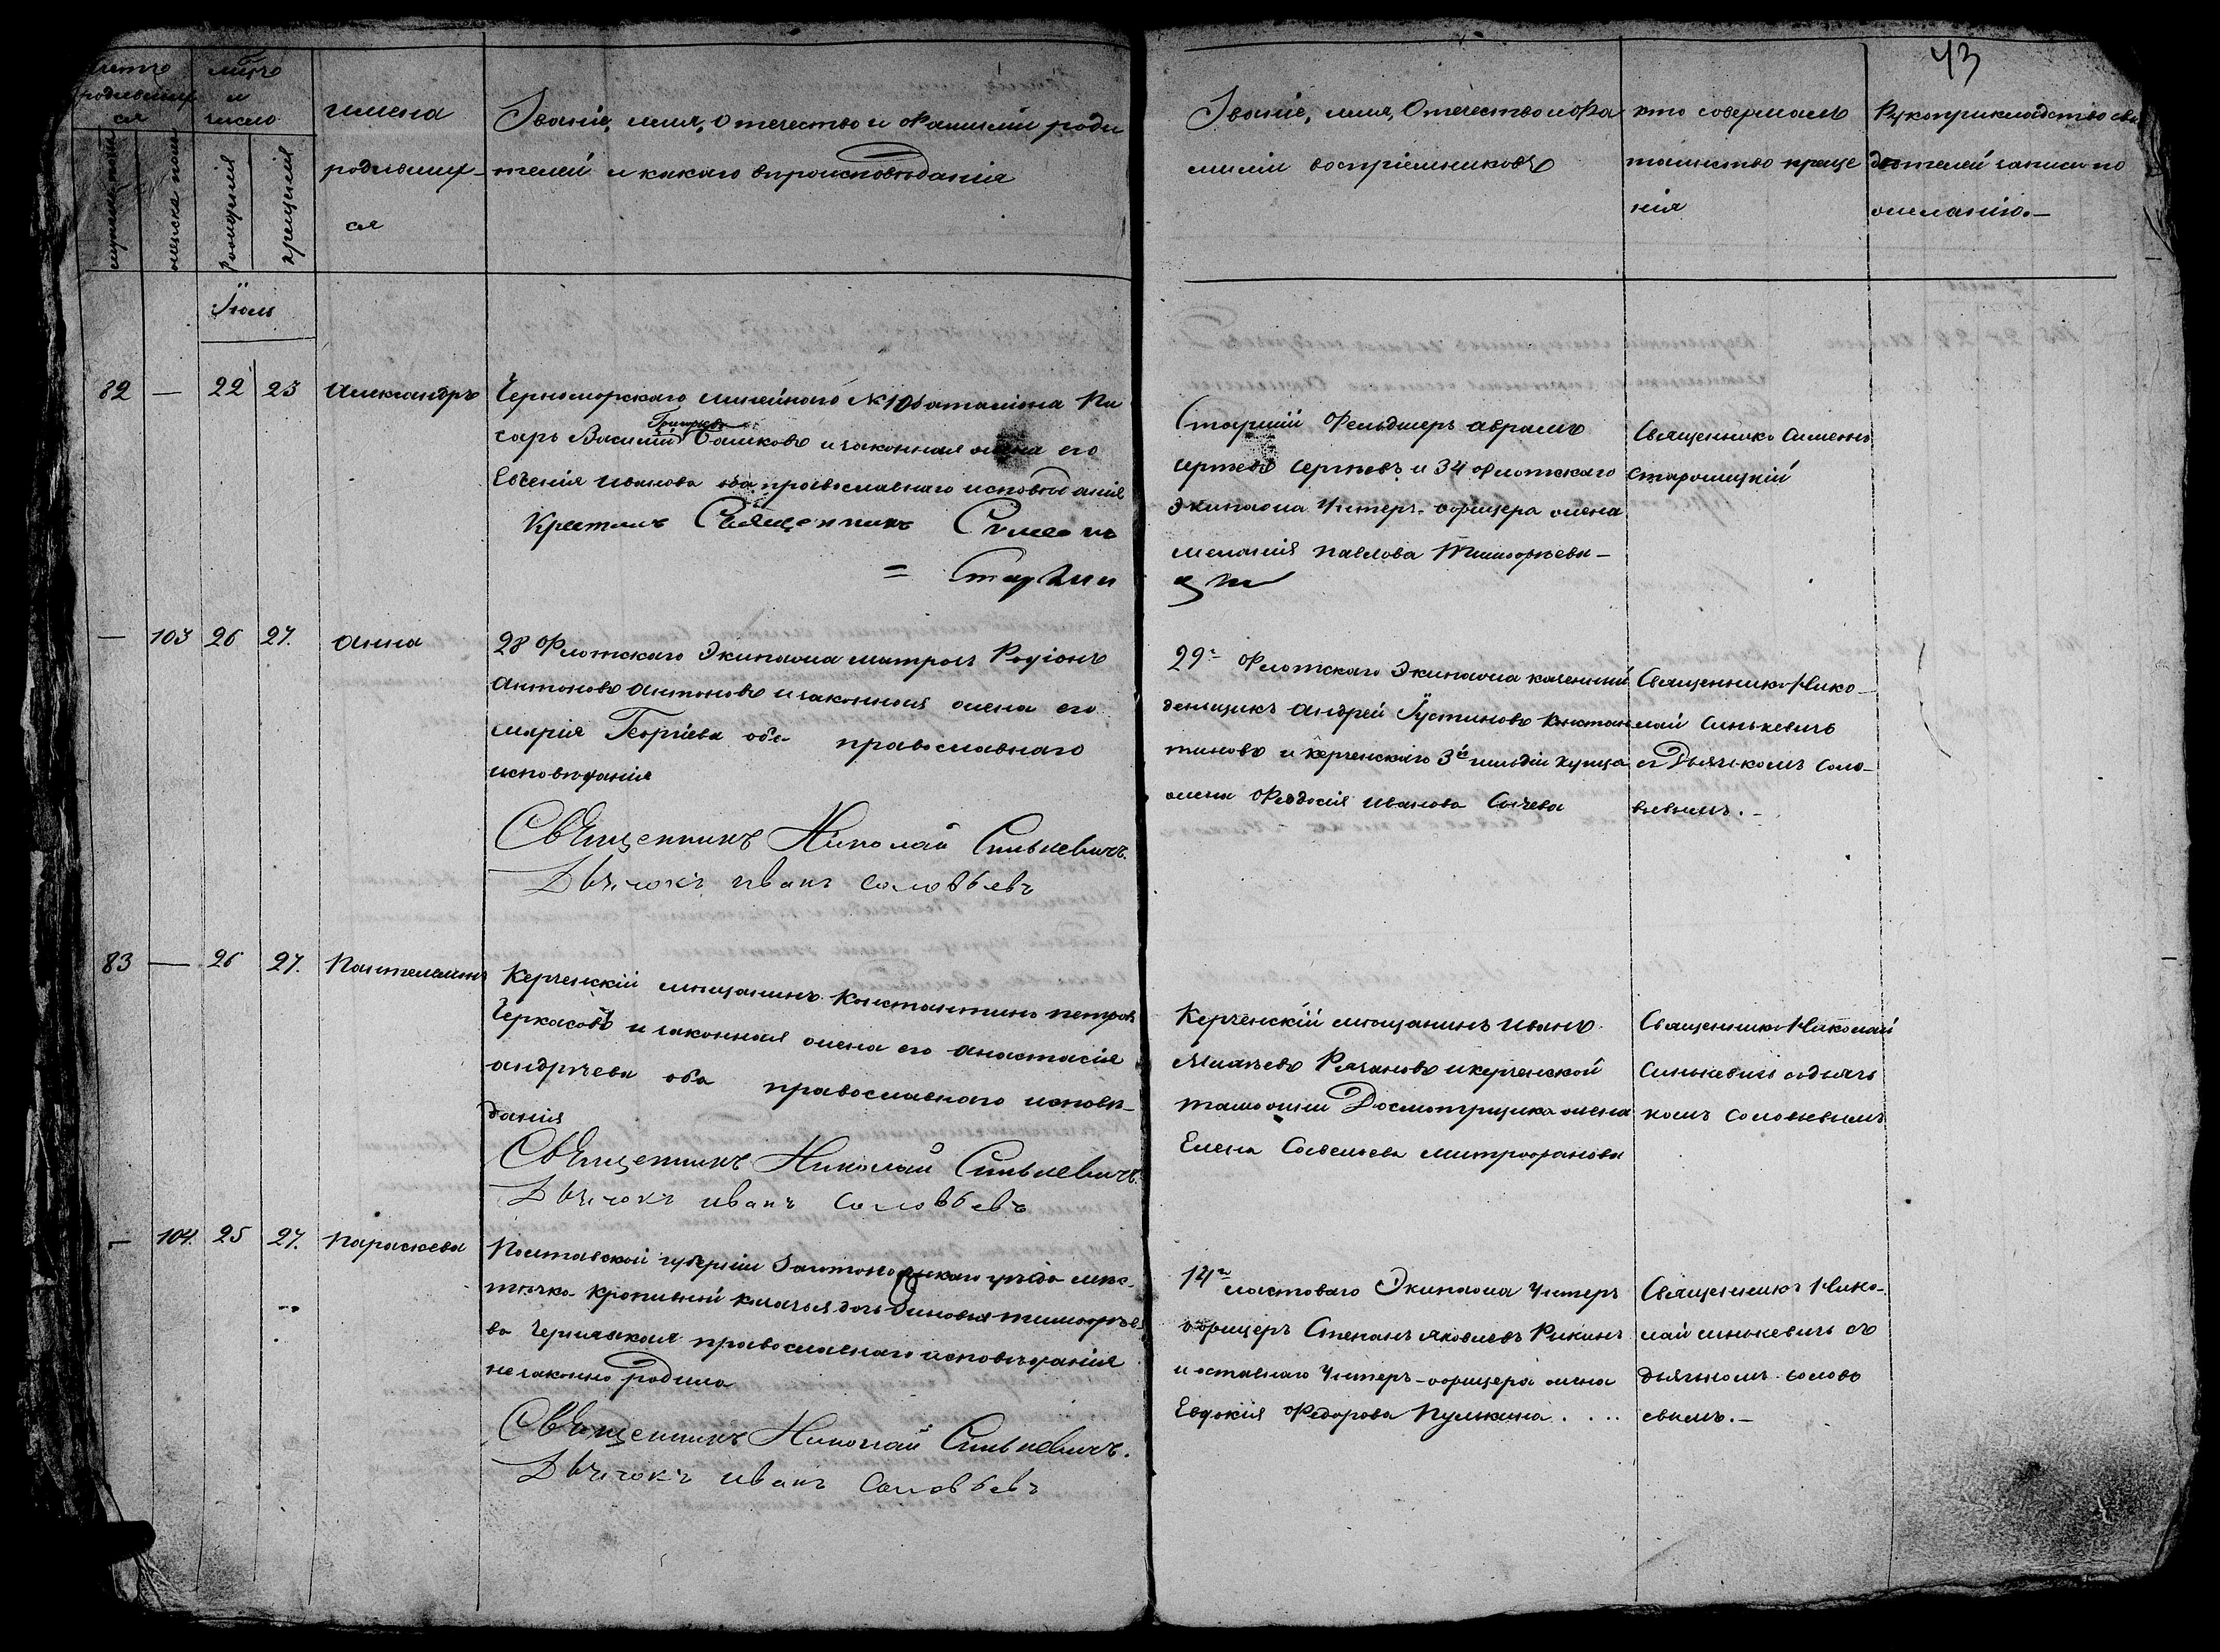 43
мѣсяцъ
родивших
ся
и
число
мужеска пола
женска пола
рожденія
крещенія
имена
родивших-
ся
Званіе, имя, Отечество и Фамиліи роди
телей и какаго вѣроисповѣданія
Званіе, имя, Отечество и Фа
миліи воспріемниковъ
кто совершалъ
таинство креще
нія
Рукоприкладство сви
дѣтелей записи по
желанію.—
Іюль
82 — 22 23 Александръ
Черноморскаго линейнаго № 10 баталіона Пи
сарь Василій Григорьевъ Башковъ и законная жена его
Евгенія Иванова оба православнаго исповѣданія
Крестилъ Священникъ Симеонъ
Старший Фельдшеръ Аврамъ
Сергѣевъ Сергѣевъ и 34 Флотскаго
Экипажа Унтеръ-офицера жена
Меланія Павлова Тимофѣева—
Священникъ Симеонъ
— 103 26 27. Анна
28 Флотскаго Экипажа матросъ Родіонъ
Антоновъ Антоновъ и законная жена его
Марія Георгіева оба православнаго
исповѣданія
Священникъ Николай Синькевичъ.
Дьячокъ Иванъ Соловьевъ
29го Флотскаго Экипажа казенный
денщикъ Андрей Іустиновъ Констан
тиновъ и Керченскаго 3й гильдіи купца
жена Феодосія Иванова Сычева
Священникъ Нико-
лай Синькевичъ
съ Дьячкомъ Соло-
вьевымъ.—
83 — 26 27. Пантелеимонъ
Керченскій мѣщанинъ Константинъ Петровъ
Черкасовъ и законная жена его Анастасія
Андреева оба православнаго исповѣ-
данія
Священникъ Николай Синькевичъ.
Дьячокъ Иванъ Соловьевъ
Керченскій мѣщанинъ Иванъ
Рязановъ и керченской
таможни Досмотрщика жена
Елена Савельева Митрофанова
Священникъ Николай
Синькевичъ съ дьяч
комъ Соловьевымъ
— 104. 25 27. Параскева
Полтавской губерніи Золотоношскаго уѣзда мѣс-
течка Кропивной козачья дочь Зиновія Тимофѣе
ва православнаго исповѣданія
незаконно родила
Священникъ Николай Синькевичъ.
Дьячокъ Иванъ Соловьевъ
14го ластоваго Экипажа Унтеръ
офицеръ Степанъ Яковлевъ Рыкинъ
и отставнаго Унтеръ-офицера жена
Евдокія Федорова Пулькина . . . .
Священникъ Нико-
лай Синькевичъ съ
дьячкомъ Соловь
евымъ.—